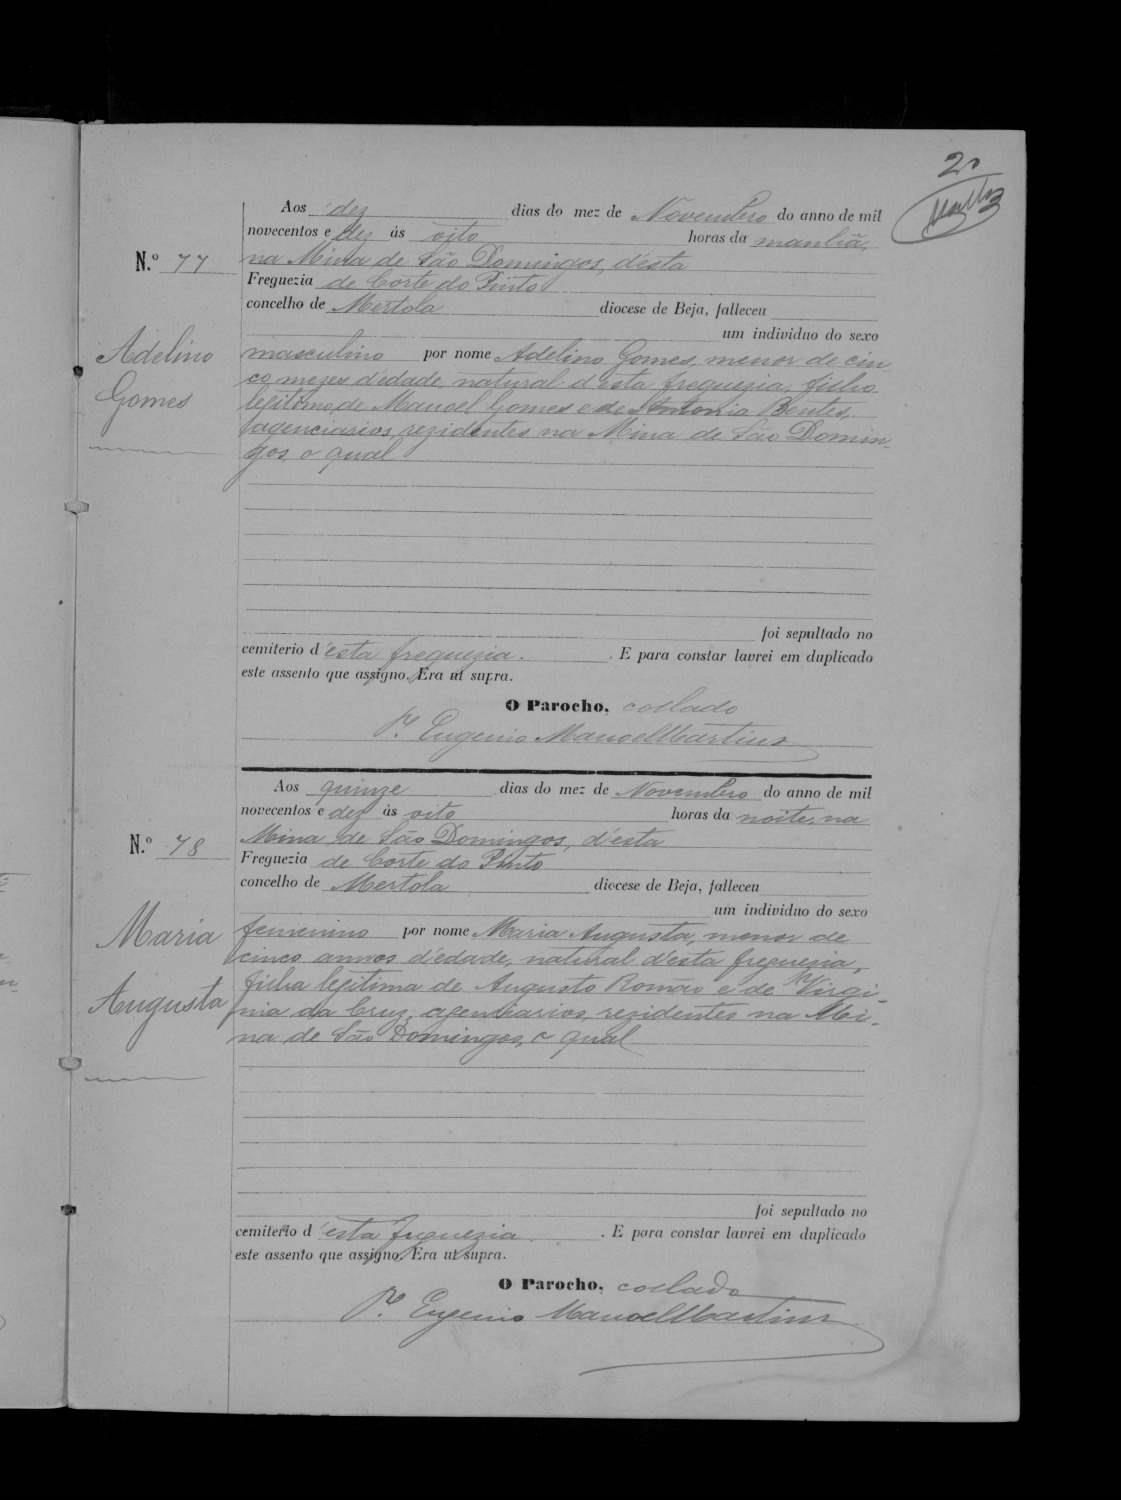 20
Martins
Aos dez dias do mez de Novembro do anno de mil
novecentos e dez ás oito horas da manhã,
N.º 77
na Mina de São Domingos, d'esta
Freguezia de Corte do Pinto
concelho de Mertola diocese de Beja, falleceu
um individuo do sexo
Adelino
Gomes
masculino por nome Adelino Gomes, menor de cin
co mezes d'edade, natural d'esta freguezia, filho
legitimo de Manoel Gomes e de Antonia Bentes,
agenciarios, rezidentes na Mina de São Domin-
gos, o qual
foi sepultado no
cemiterio d'esta freguezia. E para constar lavrei em duplicado
este assento que assigno. Era ut supra.
O Parocho, collado
P.e Eugenio Manoel Martins
Aos quinze dias do mez de Novembro do anno de mil
novecentos e dez ás oito horas da noite, na
N.º 78
Mina de São Domingos, d'esta
Freguezia de Corte do Pinto
concelho de Mertola diocese de Beja, falleceu
um individuo do sexo
Maria
Augusta
femenino por nome Maria Augusta, menor de
cinco annos d'edade, natural d'esta freguezia,
filha legitima de Augusto Romão e de Virgi-
nia da Cruz, agenciarios, rezidentes na Mi-
na de São Domingos, o qual
foi sepultado no
cemiterio d'esta freguezia. E para constar lavrei em duplicado
este assento que assigno. Era ut supra.
O Parocho, collado
P.e Eugenio Manoel Martins